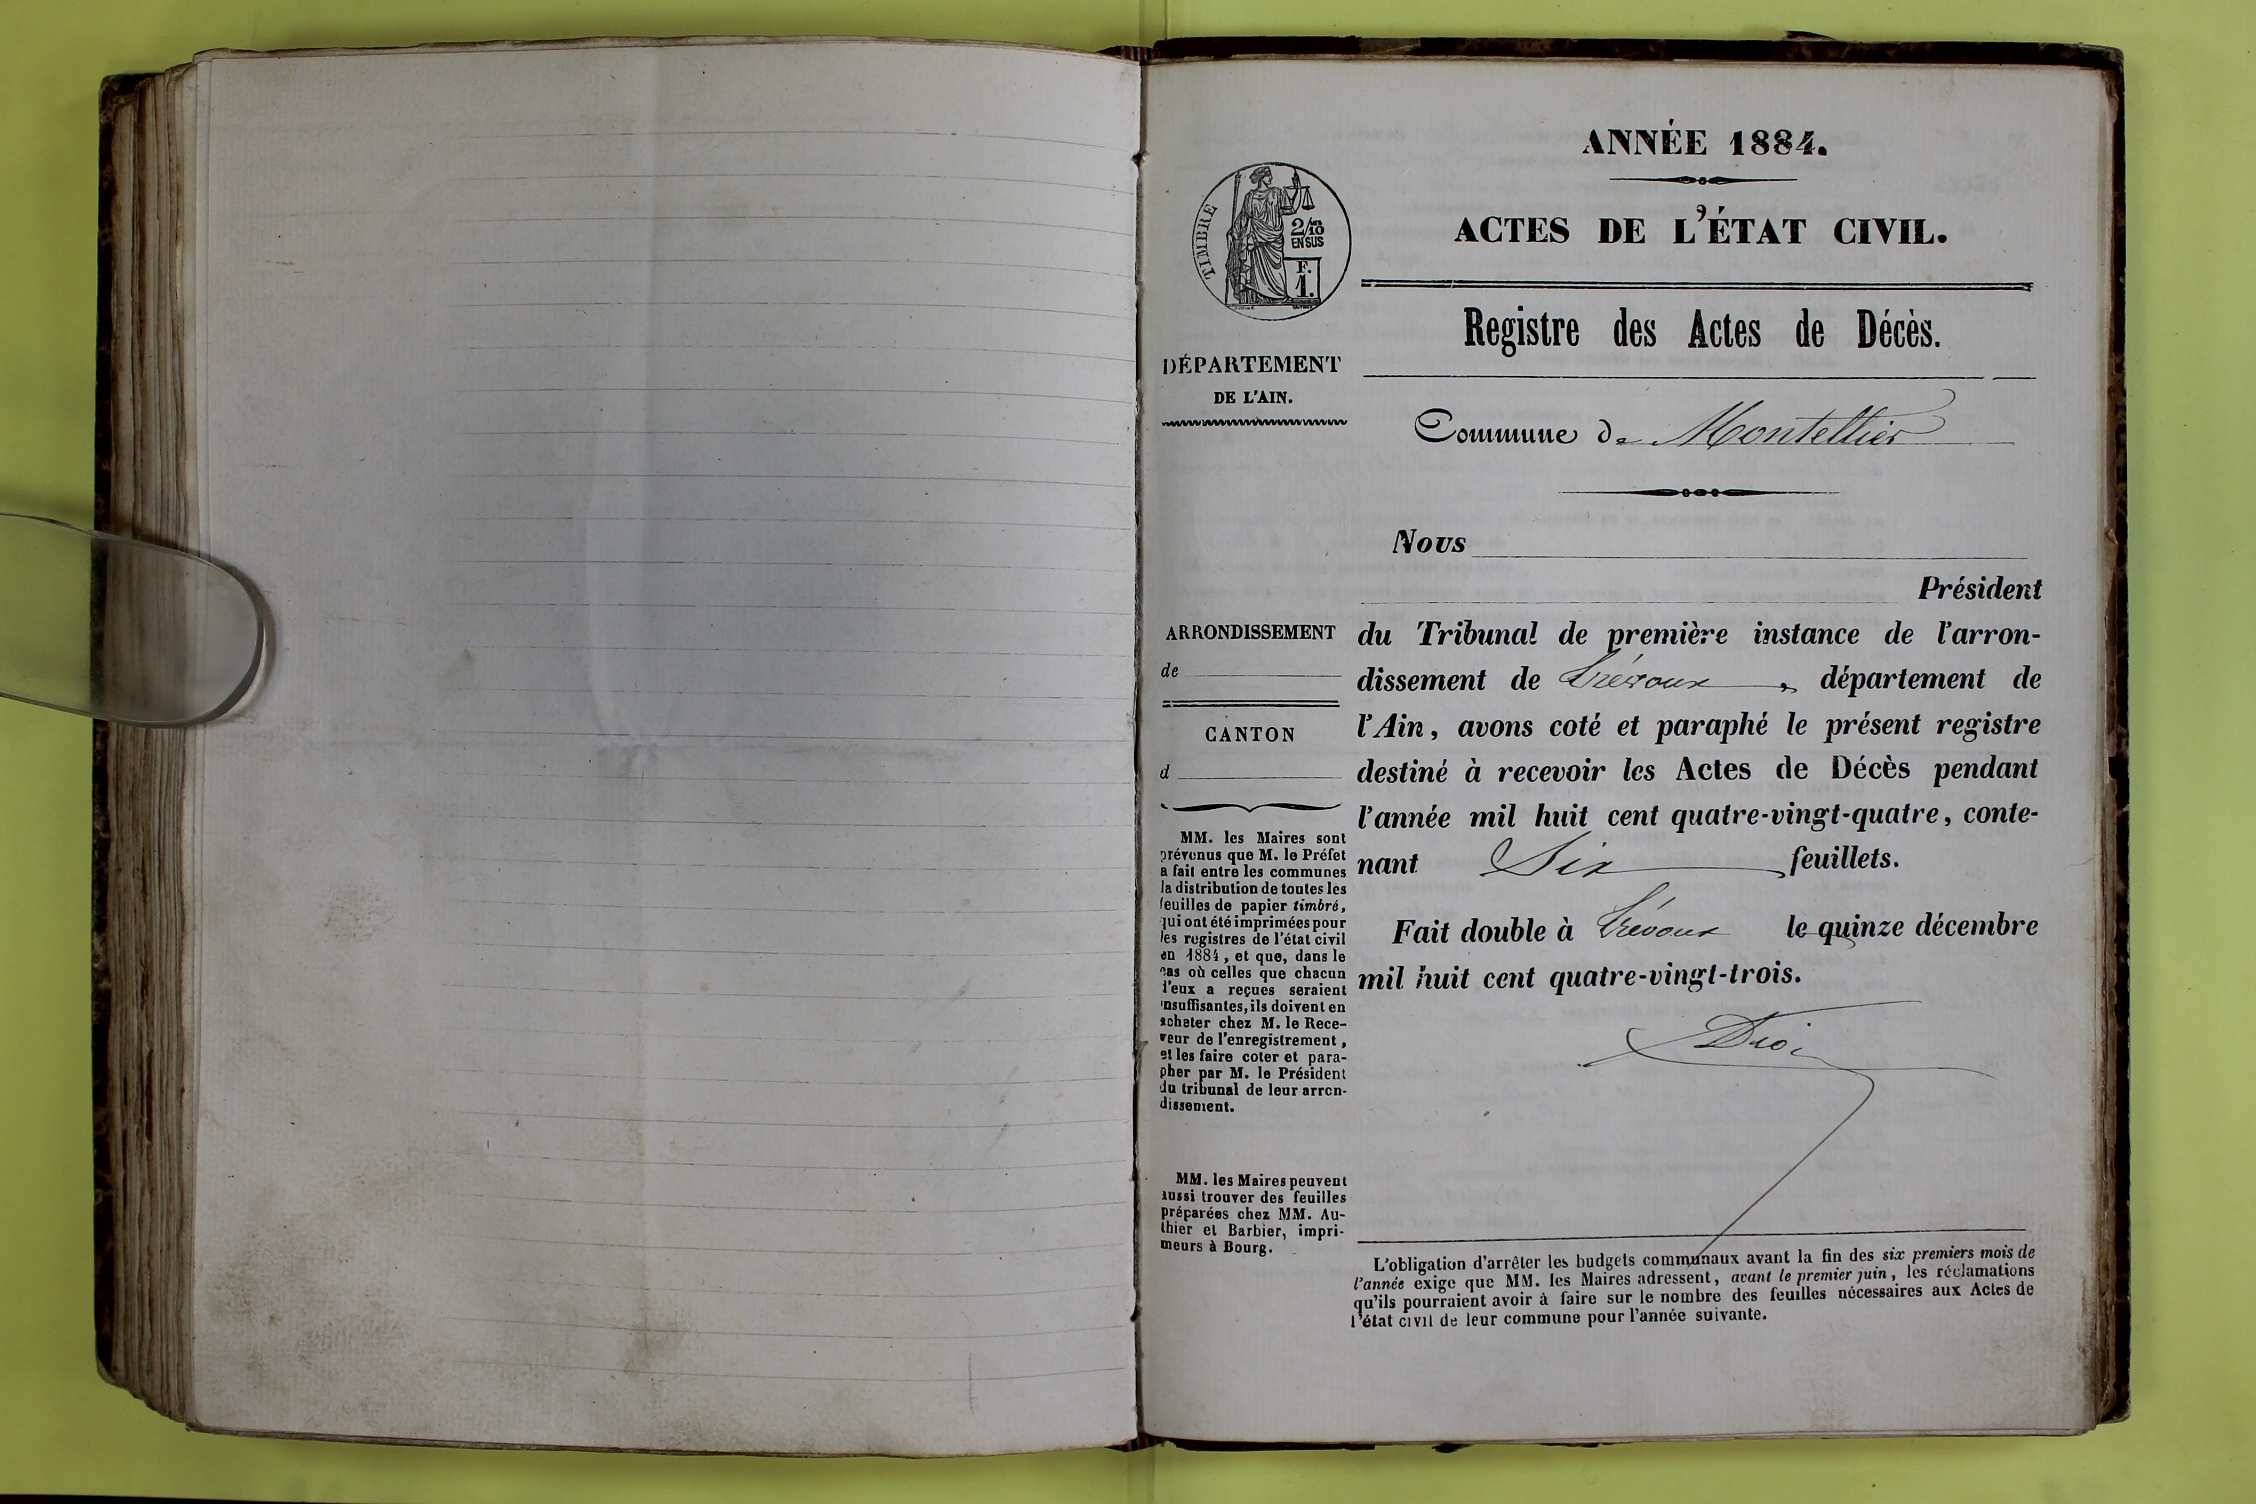 ANNÉE 1884.
ACTES DE L'ÉTAT CIVIL.
TIMBRE
2/10
EN SUS
F.
1.
Registre des Actes de Décès.
DÉPARTEMENT
DE L'AIN.
Commune de Montellier
Nous
Président
ARRONDISSEMENT
de
CANTON
d
du Tribunal de première instance de l'arron-
dissement de Trévoux, département de
l'Ain, avons coté et paraphé le présent registre
destiné à recevoir les Actes de Décès pendant
l'année mil huit cent quatre-vingt-quatre, conte-
nant Six feuillets.
Fait double à Trévoux le quinze décembre
mil huit cent quatre-vingt-trois.
MM. les Maires sont
prévenus que M. le Préfet
a fait entre les communes
la distribution de toutes les
feuilles de papier timbré,
qui ont été imprimées pour
les registres de l'état civil
en 1884, et que, dans le
cas où celles que chacun
d'eux a reçues seraient
insuffisantes, ils doivent en
acheter chez M. le Rece-
veur de l'enregistrement,
et les faire coter et para-
pher par M. le Président
du tribunal de leur arron-
dissement.
MM. les Maires peuvent
aussi trouver des feuilles
préparées chez MM. Au-
thier et Barbier, impri-
meurs à Bourg.
L'obligation d'arrêter les budgets communaux avant la fin des six premiers mois de
l'année exige que MM. les Maires adressent, avant le premier juin, les réclamations
qu'ils pourraient avoir à faire sur le nombre des feuilles nécessaires aux Actes de
l'état civil de leur commune pour l'année suivante.